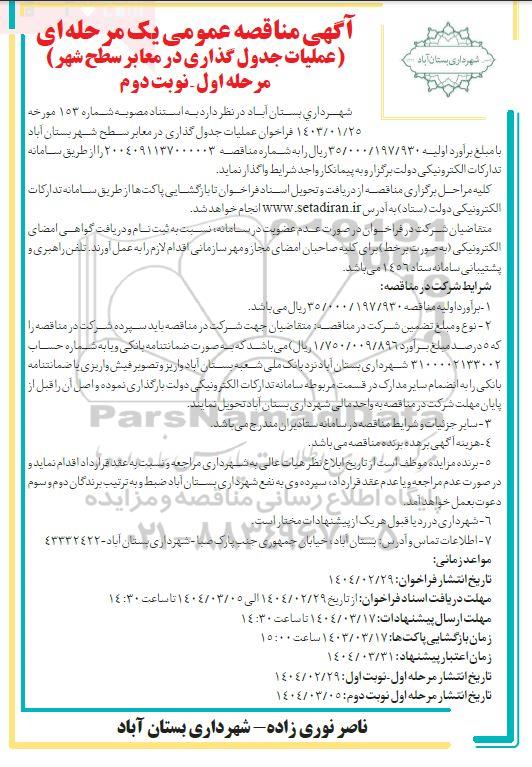 آگهی مناقصه عمومی یک مرحله‌ای
(عملیات جدول گذاری در معابر سطح شهر)
مرحله اول-نوبت دوم
شهرداری بستان‌آباد
شهرداري بستان آباد در نظر دارد به استناد مصوبه شماره ۱۵۳ مورخه
۱۴۰۳/۰۱/۲۵ فراخوان عملیات جدول گذاری در معابر سطح شهر بستان آباد
با مبلغ برآورد اولیه ۳۵/۰۰۰/۱۹۷/۹۳۰ ریال را به شماره مناقصه ۲۰۰۴۰۹۱۱۳۷۰۰۰۰۰۳ را از طریق سامانه
تدارکات الکترونیکی دولت برگزار و به پیمانکار واجد شرایط واگذار نماید.
کلیه مراحل برگزاری مناقصه از دریافت و تحویل اسناد فراخوان تا بازگشایی پاکت‌ها از طریق سامانه تدارکات
الکترونیکی دولت (ستاد) به آدرس www.setadiran.ir انجام خواهد شد.
متقاضیان شرکت در فراخوان در صورت عدم عضویت در سامانه، نسبت به ثبت نام و دریافت گواهی امضای
الکترونیکی (به صورت بر خط) برای کلیه صاحبان امضای مجاز و مهر سازمانی اقدام لازم را به عمل آورند. تلفن راهبری و
پشتیبانی سامانه ستاد ۱۴۵۶ می‌باشد.
شرایط شرکت در مناقصه:
۱-برآورد اولیه مناقصه ۳۵/۰۰۰/۱۹۷/۹۳۰ ریال می‌باشد.
۲- نوع و مبلغ تضمین شرکت در مناقصه: متقاضیان جهت شرکت در مناقصه باید سپرده شرکت در مناقصه را
که ۵ درصد مبلغ برآورد ۱/۷۵۰/۰۰۹/۸۹۶ ریال) می‌باشد که به صورت ضمانتنامه بانکی و یا به شماره حساب
۳۱۰۰۰۰۲۱۳۳۰۰۲ شهرداری بستان آباد نزد بانک ملی شعبه بستان آباد واریز و تصویر فیش واریزی یا ضمانتنامه
بانکی را به انضمام سایر مدارک در قسمت مربوطه سامانه تدارکات الکترونیکی دولت بارگذاری نموده و اصل آن را قبل از
پایان مهلت شرکت در مناقصه به واحد مالی شهرداری بستان آباد تحویل نمایند.
۳-سایر جزئیات و شرایط مناقصه در سامانه ستاد ایران مندرج می‌باشد.
۴-هزینه آگهی بر عهده برنده مناقصه می‌باشد.
۵-برنده مزایده موظف است از تاریخ ابلاغ نظر هیات عالی به شهرداری مراجعه و نسبت به عقد قرارداد اقدام نماید و
در صورت عدم مراجعه و یا عدم عقد قرارداد، سپرده وی به نفع شهرداری بستان آباد ضبط و به ترتیب برندگان دوم و سوم
دعوت بعمل خواهد آمد.
۶-شهرداری در رد یا قبول هر یک از پیشنهادات مختار است.
۷-اطلاعات تماس و آدرس: بستان آباد، خیابان جمهوری جنب پارک صبا-شهرداری بستان آباد-۴۳۳۳۲۴۲۲
مواعد زمانی:
تاریخ انتشار فراخوان: ۱۴۰۴/۰۲/۲۹
مهلت دریافت اسناد فراخوان: از تاریخ ۱۴۰۴/۰۲/۲۹ الی ۱۴۰۴/۰۳/۰۵ تا ساعت ۱۴:۳۰
مهلت ارسال پیشنهادات: ۱۴۰۴/۰۳/۱۷ تا ساعت ۱۴:۳۰
زمان بازگشایی پاکت‌ها: ۱۴۰۳/۰۳/۱۷ ساعت ۱۵:۰۰
زمان اعتبار پیشنهاد: ۱۴۰۴/۰۳/۳۱
تاریخ انتشار مرحله اول-نوبت اول: ۱۴۰۴/۰۲/۲۹
تاریخ انتشار مرحله اول نوبت دوم: ۱۴۰۴/۰۳/۰۵
ناصر نوری زاده– شهرداری بستان آباد
ParsNamadData
پایگاه اطلاع رسانی مناقصه و مزایده
۰۲۱-۸۸۳۴۹۶۷۰-۵